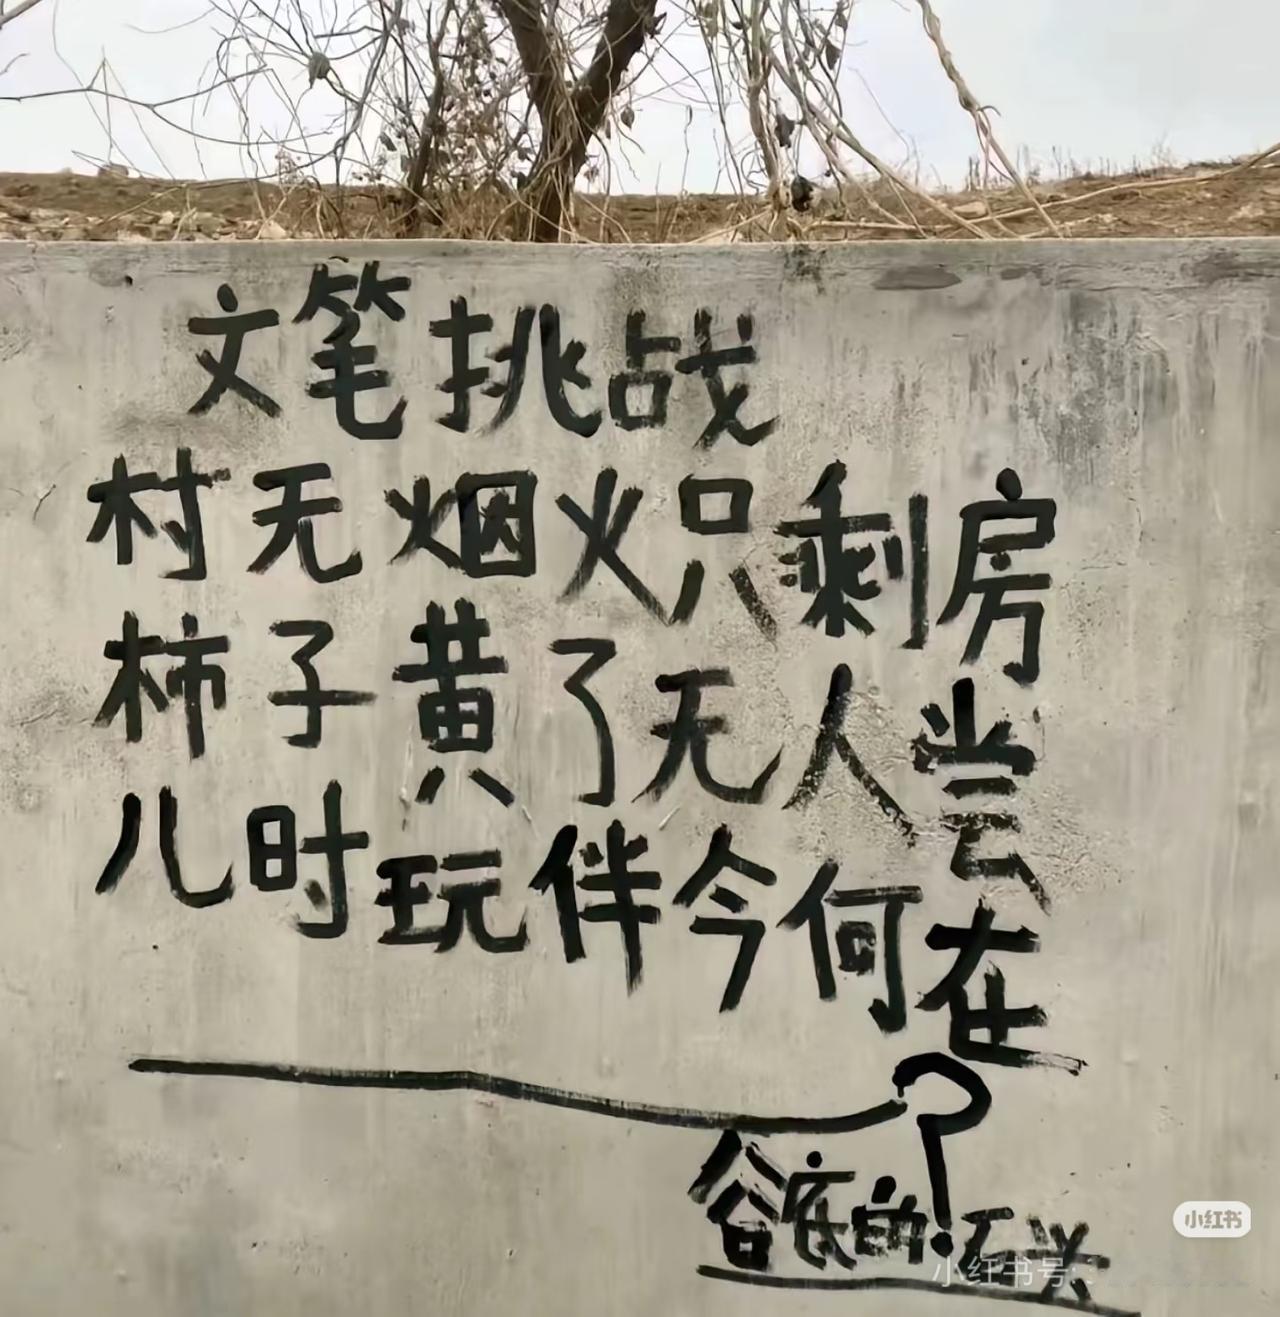 文笔挑战
村无烟火只剩房
柿子黄了无人尝
儿时玩伴今何在
?
谷底的石头
小红书
小红书号: